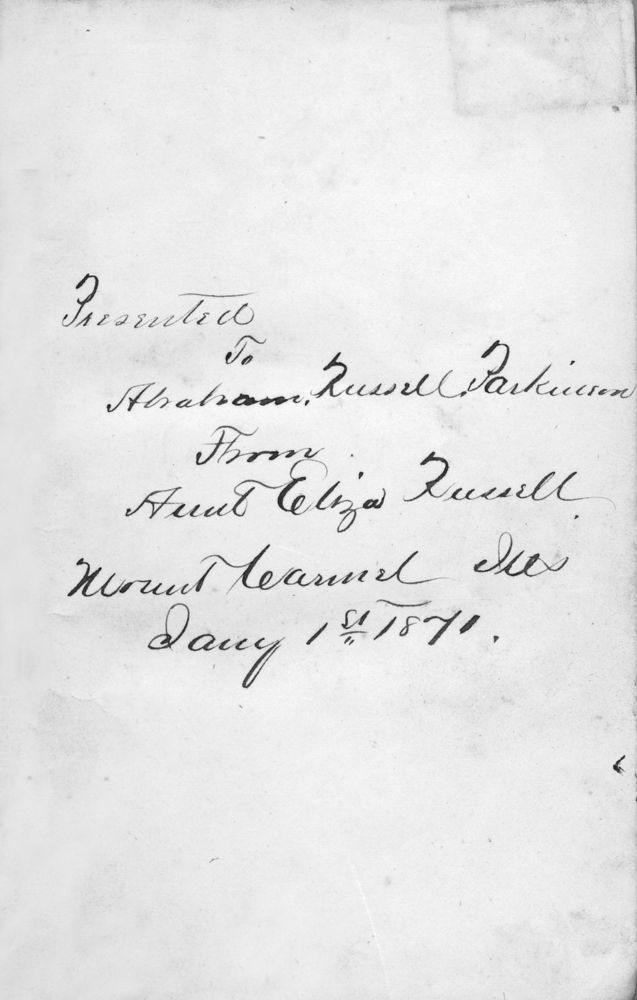 Presented
To
Abraham. Russell. Parkinson
From
Aunt Eliza Russell
Mount Carmel Ills
Jany 1st 1871.